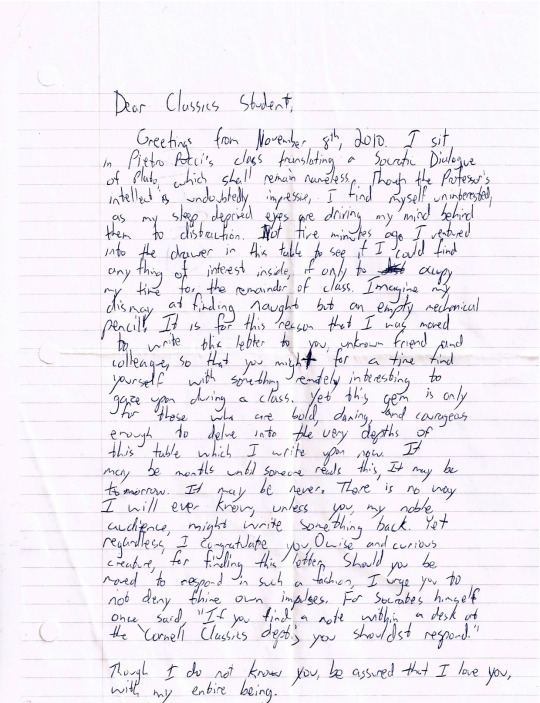 Dear Classics Student,
Greetings from November 8th, 2010. I sit
in Pietro Pucci's class translating a Socratic Dialogue
of Plato, which shall remain nameless. Though the Professor's
intellect is undoubtedly impressive, I find myself uninterested,
as my sleep deprived eyes are driving my mind behind
them to distraction. Not five minutes ago I ventured
into the drawer in this table to see if I could find
any thing of interest inside, if only to occupy
my time for the remainder of class. Imagine my
dismay at finding naught but an empty mechanical
pencil. It is for this reason that I was moved
to write this letter to you, unknown friend and
colleague, so that you might for a time find
yourself with something remotely interesting to
gaze upon during a class. Yet this gem is only
for those who are bold, daring, and courageous
enough to delve into the very depths of
this table which I write upon now. It
may be months until someone reads this, It may be
tomorrow. It may be never. There is no way
I will ever know, unless you, my noble
audience, might write something back. Yet
regardless, I congratulate you, O wise and curious
creature, for finding this letter. Should you be
moved to respond in such a fashion, I urge you to
not deny thine own impulses. For Socrates himself
once said, "If you find a note within a desk at
the Cornell Classics dept., you shouldst respond."
Though I do not know you, be assured that I love you,
with my entire being.